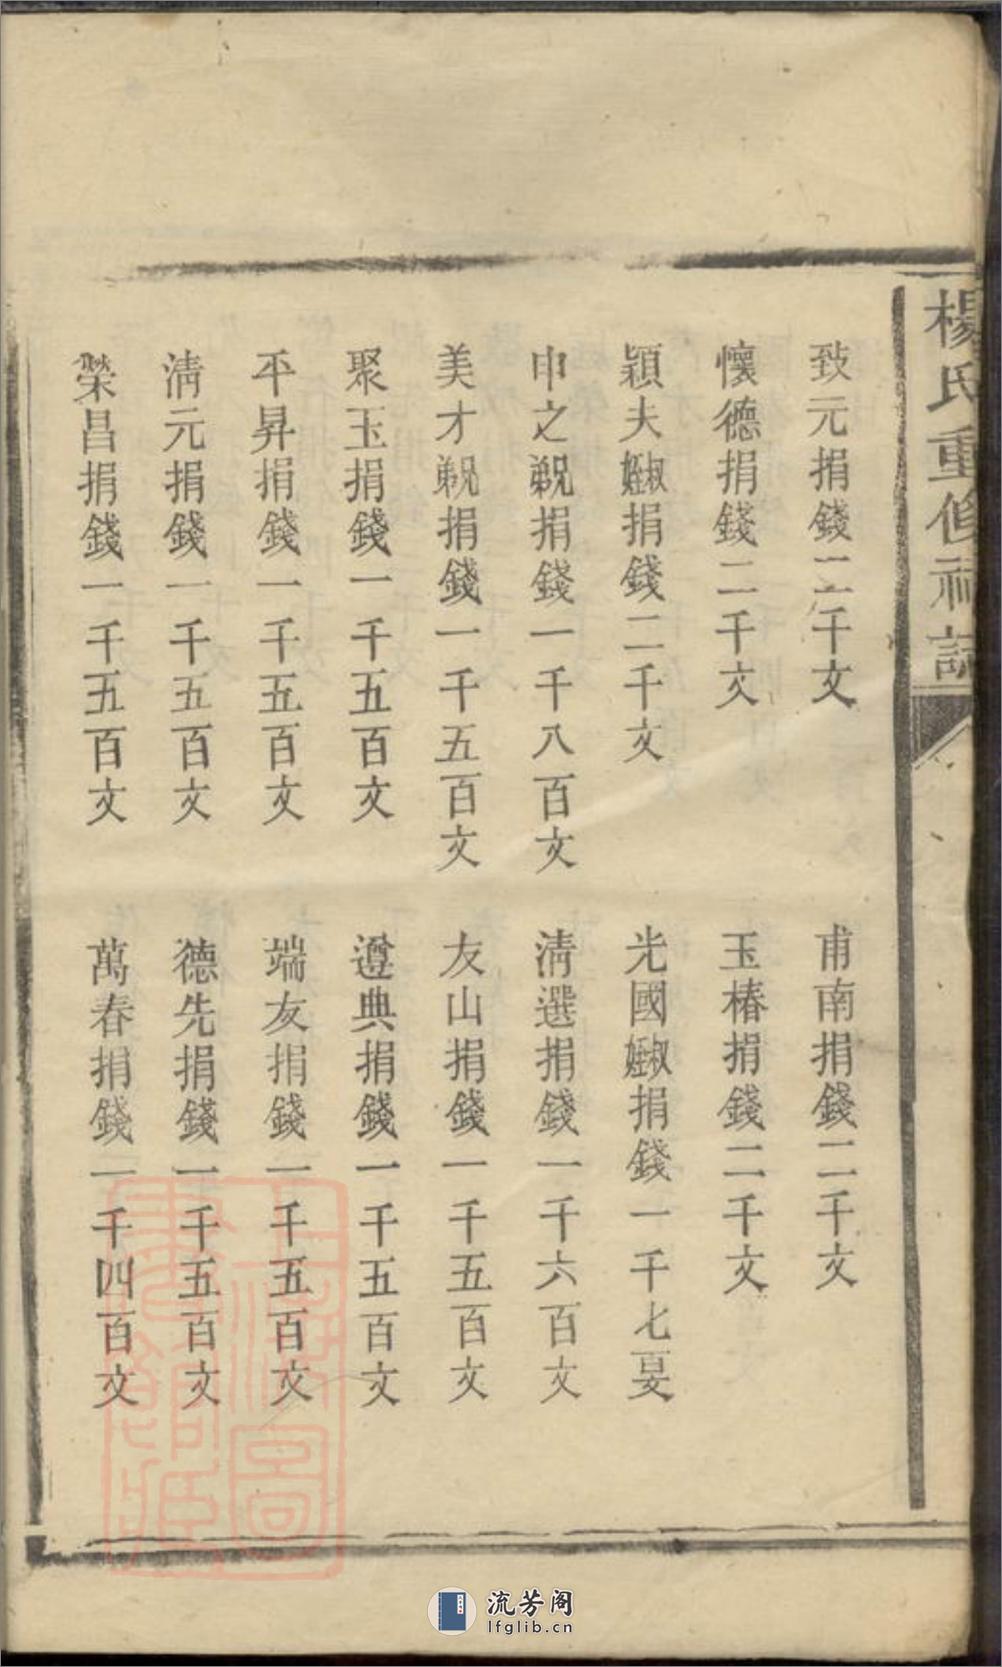 楊氏重修祠
致元捐錢二千文
甫南捐錢二千文
懷德捐錢二千文
玉椿捐錢二千文
穎夫叔姪捐錢二千文
光國叔姪捐錢一千七百文
申之兄弟捐錢一千八百文
清選捐錢一千六百文
美才兄弟捐錢一千五百文
友山捐錢一千五百文
聚玉捐錢一千五百文
遵典捐錢一千五百文
平昇捐錢一千五百文
端友捐錢一千五百文
清元捐錢一千五百文
德先捐錢一千五百文
榮昌捐錢一千五百文
萬春捐錢一千四百文
上海圖書館藏
流芳阁
lfglib.cn